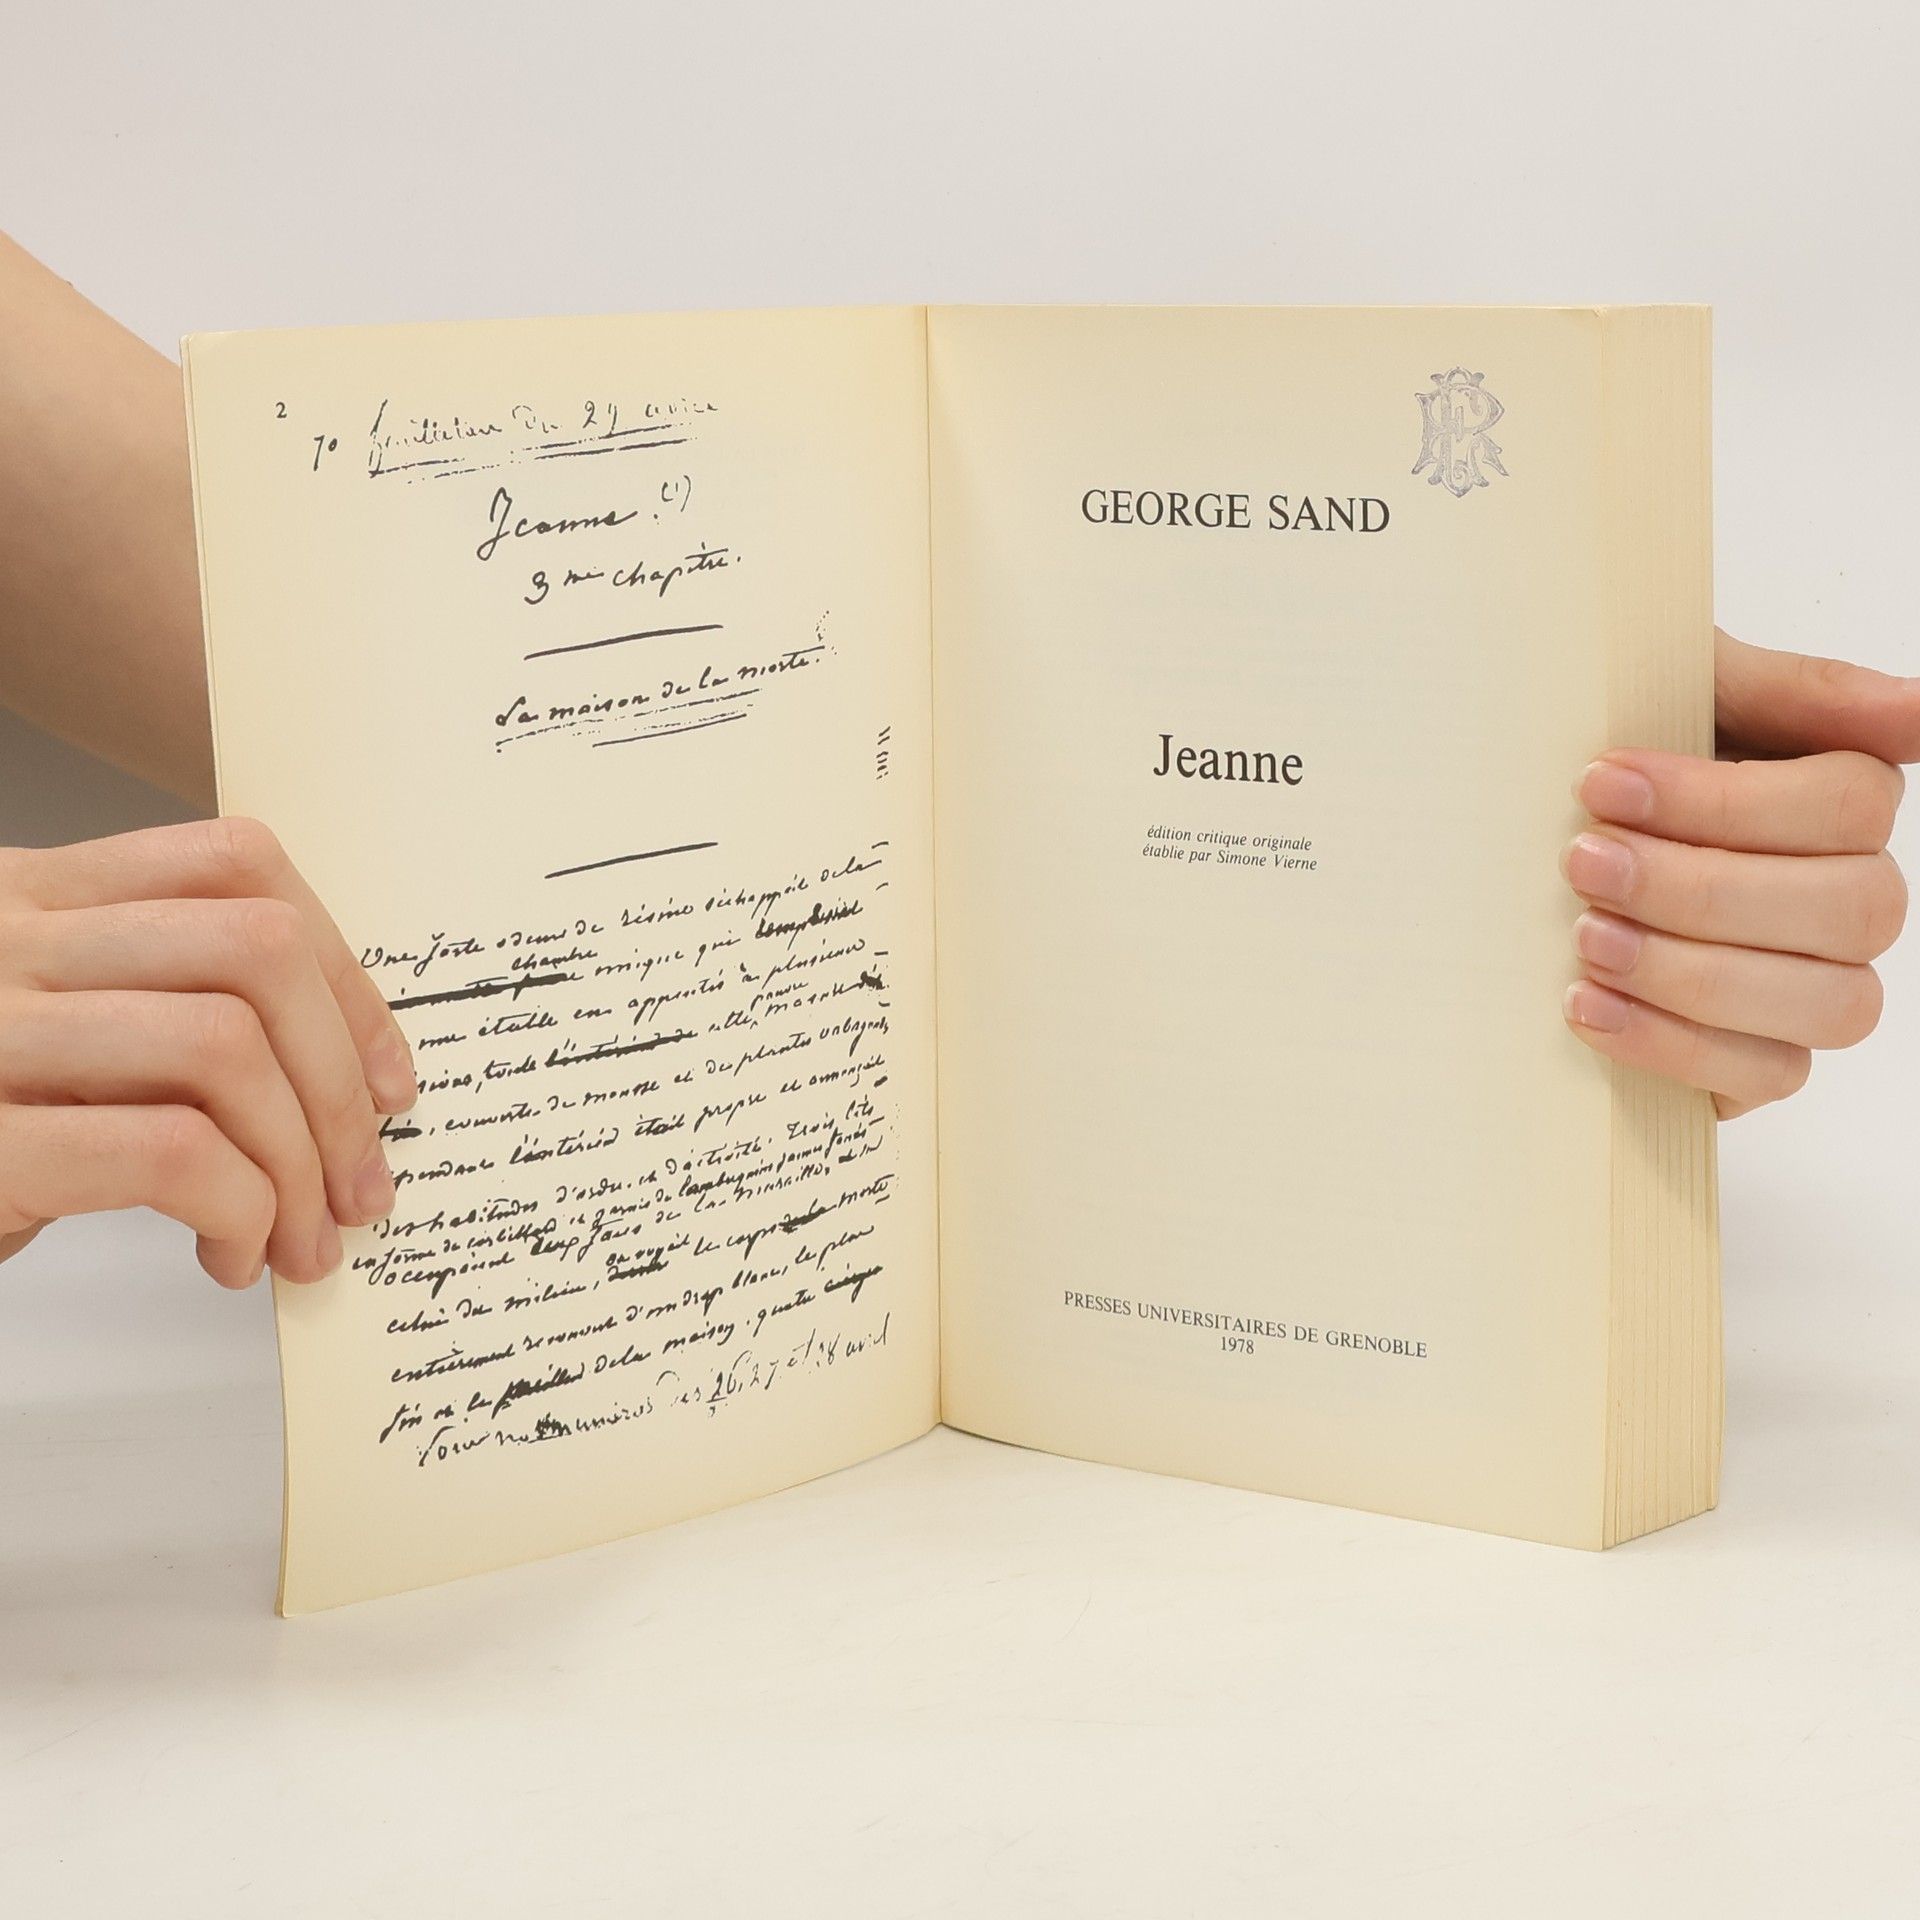 2
70 feuilleton du 29 avril
Jeanne. (1)
3me chapitre.
La maison de la morte.
Une forte odeur de résine s'échappait de la
chambre
unique qui
une étable en appentis à plusieurs
pauvre
toute l'intérieur de cette, masure
, couverte de mousse et de plantes
l'intérieur était propre et annonçait
des habitudes d'ordre et d'activité. Trois lits
en forme de corbillard et garnis de lambrequins jaunes fanés
occupaient deux faces de la muraille, et sur
on voyait
celui du milieu, le corps de la morte
entièrement recouvert d'un drap blanc, le plus
fin et le meilleur de la maison. quatre cierges
Voir nos numéros des 26, 27 et 28 avril
GEORGE SAND
Jeanne
édition critique originale
établie par Simone Vierne
PRESSES UNIVERSITAIRES DE GRENOBLE
1978